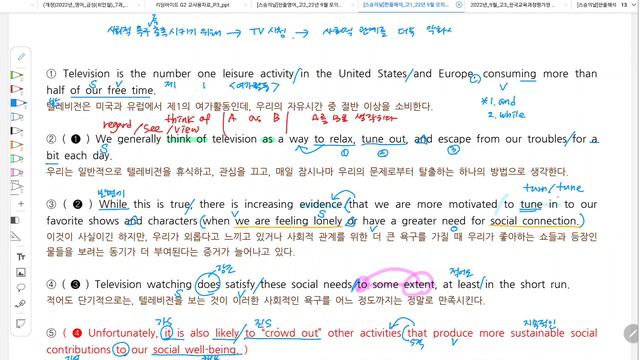 (개정)2022년_영어_금성(최인철)_7과_
리딩바이드 G2 교사용자료_P3_ppt
[스승의날]한줄영어_고2_22년 9월 모의
[스승의날]한줄해석_고1_21년 9월 모의
2022년_9월_고3_전국교육과정평가원
[스승의날]한줄해석
13
사회적 욕구 충족시키기 위해 → TV 시청 → 사회적 관계를 더욱 악화시
① Television is the number one leisure activity in the United States and Europe, consuming more than
half of our free time. 제 1 <여가활동>
*1. and
2. while
텔레비전은 미국과 유럽에서 제1의 여가활동인데, 우리의 자유시간 중 절반 이상을 소비한다.
regard / see / view think of A as B A를 B로 생각하다
② ( ❶ ) We generally think of television as a way to relax, tune out, and escape from our troubles for a
S ① ② ③
bit each day.
우리는 일반적으로 텔레비전을 휴식하고, 관심을 끄고, 매일 잠시나마 우리의 문제로부터 탈출하는 하나의 방법으로 생각한다.
turn / tune
③ ( ❷ ) While this is true, there is increasing evidence that we are more motivated to tune in to our
favorite shows and characters (when we are feeling lonely or have a greater need for social connection.
이것이 사실이긴 하지만, 우리가 외롭다고 느끼고 있거나 사회적 관계를 위한 더 큰 욕구를 가질 때 우리가 좋아하는 쇼들과 등장인
물들을 보려는 동기가 더 부여된다는 증거가 늘어나고 있다.
강조
④ ( ❸ ) Television watching does satisfy these social needs to some extent, at least in the short run.
적어도 단기적으로는, 텔레비전을 보는 것이 이러한 사회적인 욕구를 어느 정도까지는 정말로 만족시킨다.
가S 진S 지속적인
⑤ ( ❹ Unfortunately, it is also likely to "crowd out" other activities that produce more sustainable social
contributions to our social well-being. )